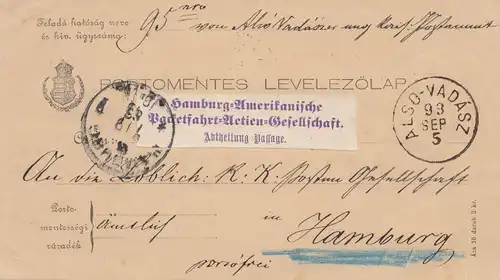 Feladó hatóság neve
és hiv. ügyszáma:
95 nro von Alsó Vadász ung kön. Postamt
PORTOMENTES LEVELEZŐLAP
Hamburg-Amerikanische
Packetfahrt-Actien-Gesellschaft.
Abtheilung Passage.
ALSO-VADÁSZ
93
SEP
5
An die Löblich: K. K. Posten Gesellschaft
Porto-
mentességi
záradék
Ämtlich
in
Hamburg
portofrei
Ára 10 darab 2 kr.